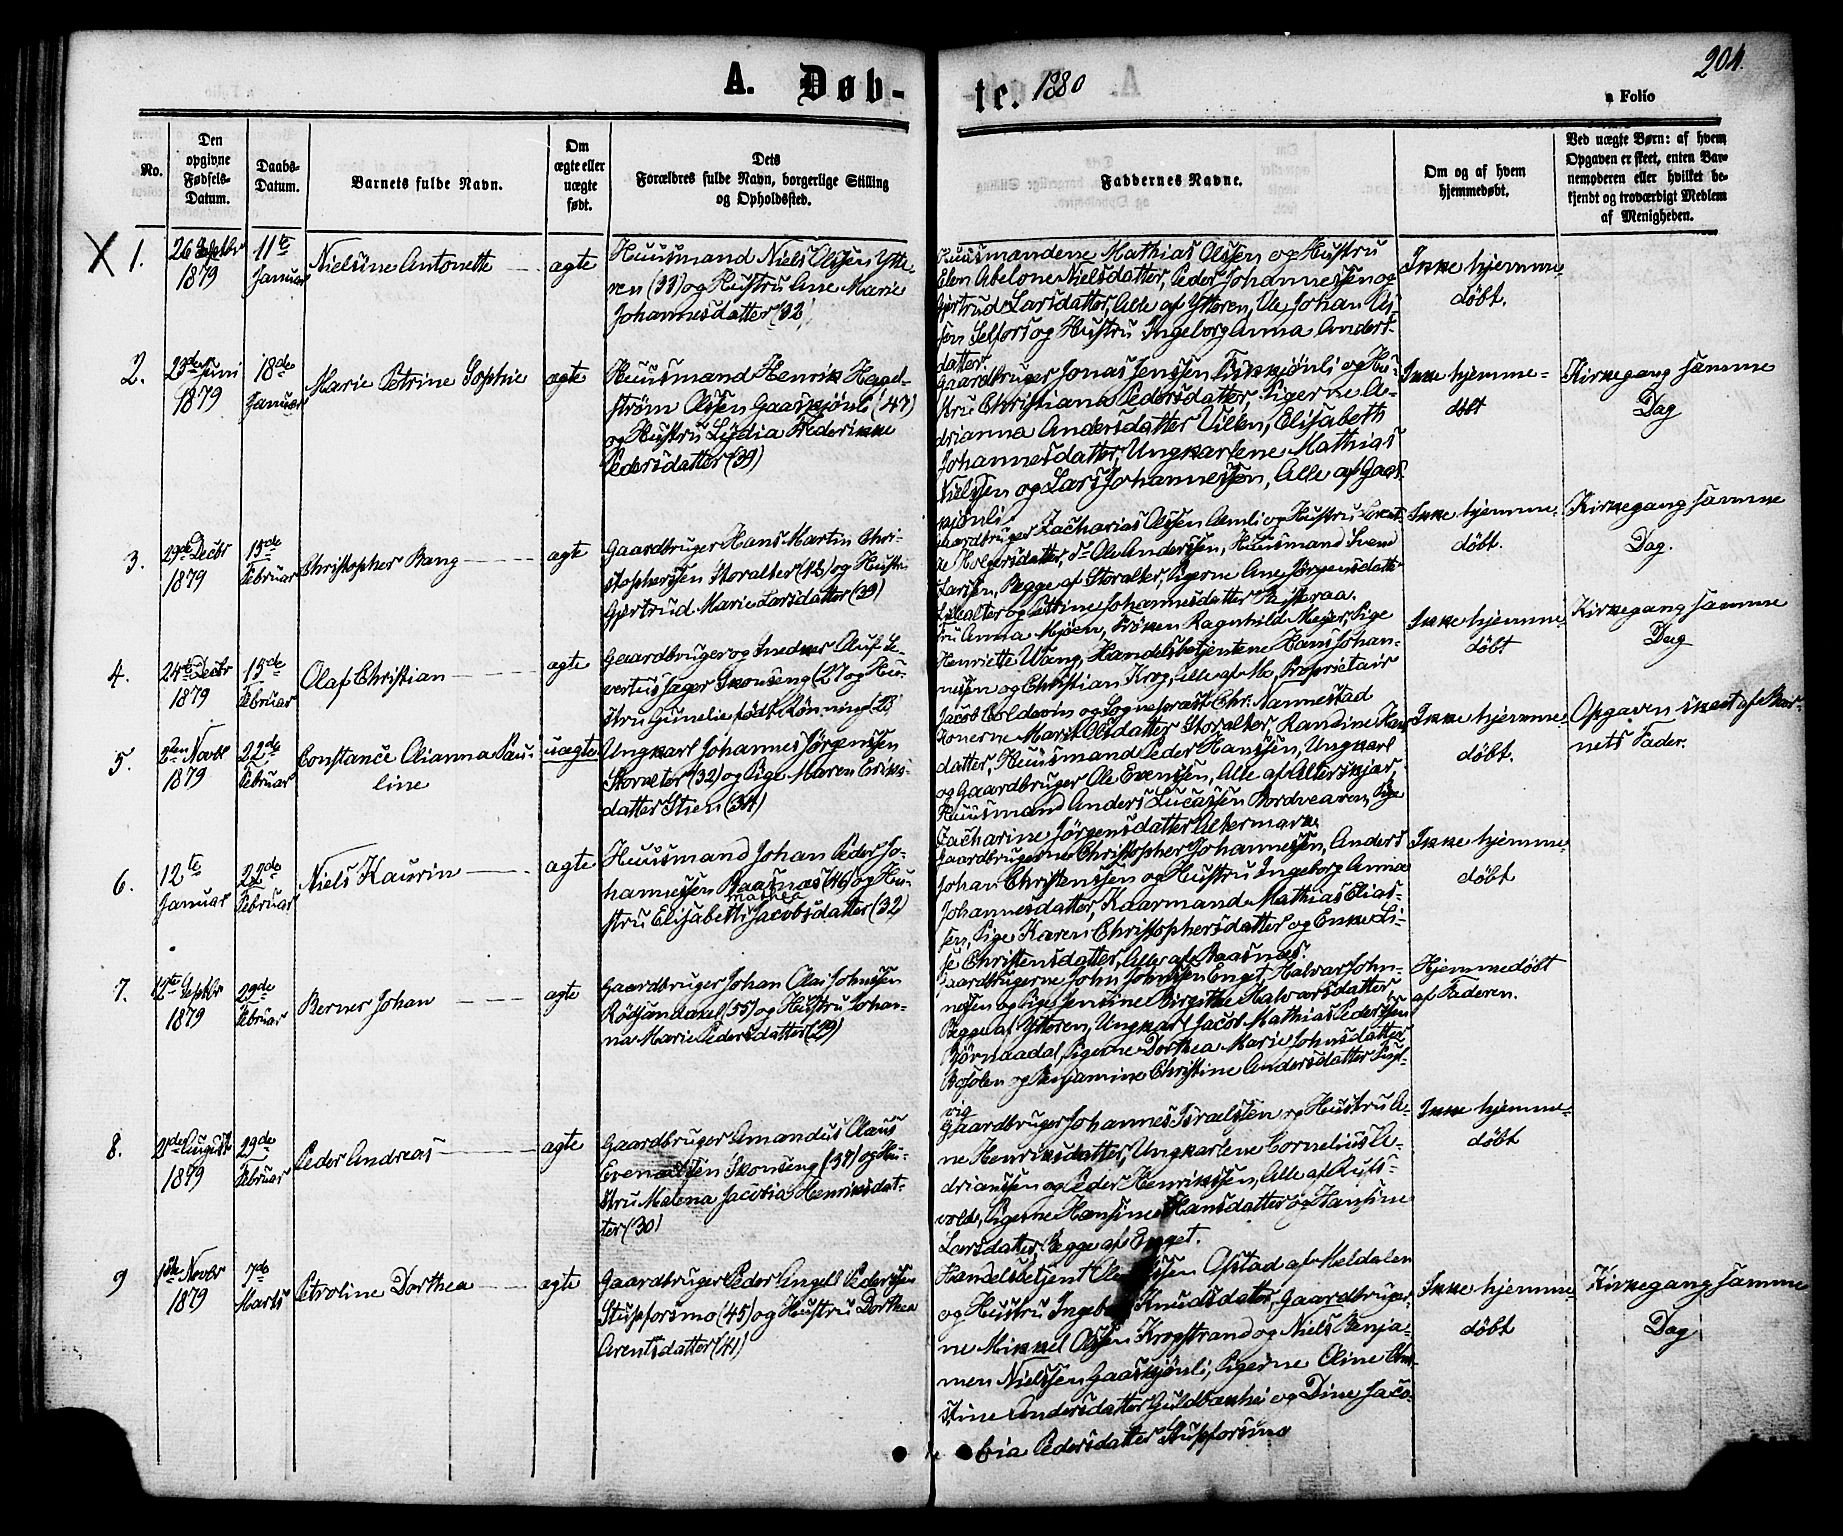 204.
A. Døb-
te. 1880
a Folio
No.
Den
opgivne
Fødsels-
Datum.
Daabs-
Datum.
Barnets fulde Navn.
Om
ægte eller
uægte
født.
Dets
Forældres fulde Navn, borgerlige Stilling
og Opholdssted.
Faddernes Navne.
Om og af hvem
hjemmedøbt.
Ved uægte Børn: af hvem
Opgaven er skeet, enten Bar-
nemoderen eller hvilket be-
kjendt og troværdigt Medlem
af Menigheden.
X 1.
26 Septbr
1879
11te
Januar
Nielsine Antonette
ægte
Huusmand Niels Olssen Ytte-
ren (31) og Hustru Ane Marie
Johannesdatter (32)
Huusmandene Mathias Olssen og Hustru
Elen Abelone Nielsdatter, Peder Johannessen og
Gjertrud Larsdatter, Alle af Ytteren, Ole Johan Ols-
sen Selfors og Hustru Ingeborg Anna Anders-
datter.
Ikke hjemme-
døbt.
2.
23de Juni
1879
18de
Januar
Marie Petrine Sophie
ægte
Huusmand Henrik Hagel-
strøm Olssen Gaaskjønli (47)
og Hustru Lydia Frederikke
Pedersdatter (39)
Gaardbruger Jonas Jenssen Finkjønli og Hu-
stru Christiana Pedersdatter, Pigerne A-
drianna Andersdatter Viken, Elisabeth
Johannesdatter, Ungkarlene Mathias
Nielssen og Lars Johannessen, Alle af Gaas-
kjønli
Ikke hjemme-
døbt
Kirkegang samme
Dag
3.
29de Decbr
1879
15de
Februar
Christopher Bang
ægte
Gaardbruger Hans Martin Chri-
stophersen Storalter (42) og Hustru
Gjertrud Marie Larsdatter (39)
Gaardbruger Zacharias Olssen Aemli og Hustru
Holgersdatter, do Ole Anderssen, Huusmand Svend
Larssen, Begge af Storalter, Pigerne Ane Jørgensdatter
Lillealter og Petrine Johannesdatter Reisteraa.
Ikke hjemme-
døbt.
Kirkegang samme
Dag.
4.
24de Decbr
1879
15de
Februar
Olaf Christian
ægte
Gaardbruger og Snedker Oluf Se-
vertus Jæger Skonseng (27 og Hu-
stru Gunelie født Rønning (23)
Fru Anna Mjøen, Frøken Ragnhild Meyer, Pige
Henriette Wang, Handelsbetjentene Hans Johan-
nessen og Christian Krog, alle af Mo, Proprietair
Jacob Coldevin og Sognepræst Chr. Nannestad
Ikke hjemme-
døbt
Kirkegang samme
Dag
5.
2den Novbr
1879
22de
Februar
Constance Olianna Pau-
line
uægte
Ungkarl Johannes Jørgenssen
Storneter (32) og Pige Maren Eriks-
datter Stien (34)
Konerne Marit Olsdatter Storalter, Randine Hans-
datter, Huusmand Peder Hanssen, Ungkarl
og Gaardbruger Ole Evenssen, Alle af Alterskjær,
Huusmand Anders Lucassen Bordvedaren, Pige
Zacharine Jørgensdatter Altermark
Ikke hjemme-
døbt.
Opgaven skeet af Bar-
nets Fader.
6.
12te
Januar
22de
Februar
Niels Kaurin
ægte
Huusmand Johan Peder Jo-
hannessen Baasnæs (46) og Hu-
stru Elisabeth Mathea Jacobsdatter (32)
Gaardbrugerne Christopher Johannessen, Anders
Johan Christenssen og Hustru Ingeborg Anna
Johannesdatter, Kaarmand Mathias Elias-
sen, Pige Karen Christophersdatter og Enke Li-
se Christensdatter, Alle af Baasnæs.
Ikke hjemme-
døbt
7.
12te Septbr
1879
29de
Februar
Berner Johan
ægte
Gaardbruger Johan Olai Johnssen
Rødsandaxel (55) og Hustru Johan-
na Marie Pedersdatter (29)
Gaardbrugerne John Johnssen Enget, Halvar John-
nessen og Pige Jensine Birgithe Halvarsdatter
Begge af Ytteren, Ungkarl Jacob Mathias Pederssen
Bjørnaadal, Pigerne Dorthea Marie Johnsdatter
Bosolen og Benjamine Christine Andersdatter
vig
Hjemmedøbt
af Faderen.
8.
21de August
1879
29de
Februar
Peder Andreas
ægte
Gaardbruger Amandus Claus
Evenassen Skonseng (37) og Hu-
stru Malena Jacobia Henriksdat-
ter (30)
Gaardbruger Johannes Israelssen og Hustru A-
ne Henriksdatter, Ungkarlene Cornelius A-
drianssen og Peder Henrikssen, Alle af Rufs-
vold, Pigerne Hansine Hansdatter og Hansine
Larsdatter, Begge af Enget.
Ikke hjemme-
døbt
9
1ste Novbr
1879
7de
Marts
Petroline Dorthea
ægte
Gaardbruger Peder Angell Pederssen
Stupforsmo (45) og Hustru Dorthea
Arentsdatter (41)
Handelsbetjent Ole Olssen Opstad af Meldalen
og Hustru Ingeborg Knudsdatter, Gaardbruger-
ne Mikkel Olssen Krogstrand og Niels Benja-
men Nielssen Gaaskjønli, Pigerne Oline Chri-
stine Andersdatter Guldbakhei og Dine Jaco-
bia Pedersdatter Stupforsmo
Ikke hjemme-
døbt
Kirkegang samme
Dag